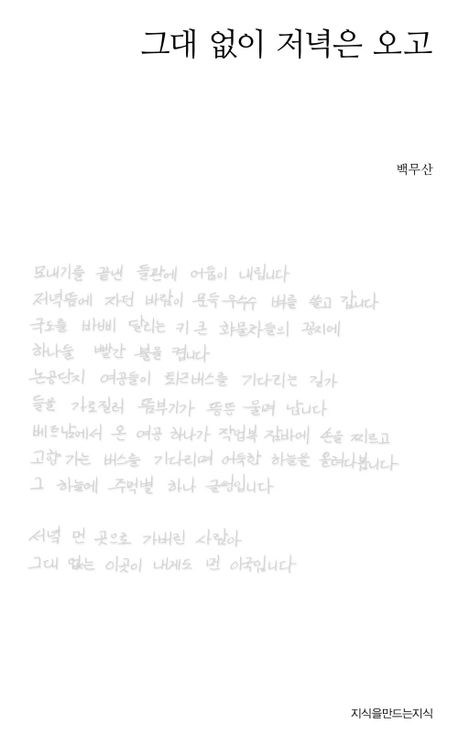 그대 없이 저녁은 오고
백무산
모내기를 끝낸 들판에 어둠이 내립니다
저녁뜸에 자던 바람이 문득 우수수 벼를 쓸고 갑니다
국도를 바삐 달리는 키 큰 화물차들의 꽁지에
하나둘 빨간 불을 켭니다
논공단지 여공들이 퇴근버스를 기다리는 길가
들을 가로질러 뜸부기가 뜸뜸 울며 납니다
베트남에서 온 여공 하나가 작업복 잠바에 손을 찌르고
고향 가는 버스를 기다리며 어둑한 하늘을 올려다봅니다
그 하늘에 주먹별 하나 글썽입니다
저녁 먼 곳으로 가버린 사람아
그대 없는 이곳이 내게도 먼 이국입니다
지식을만드는지식